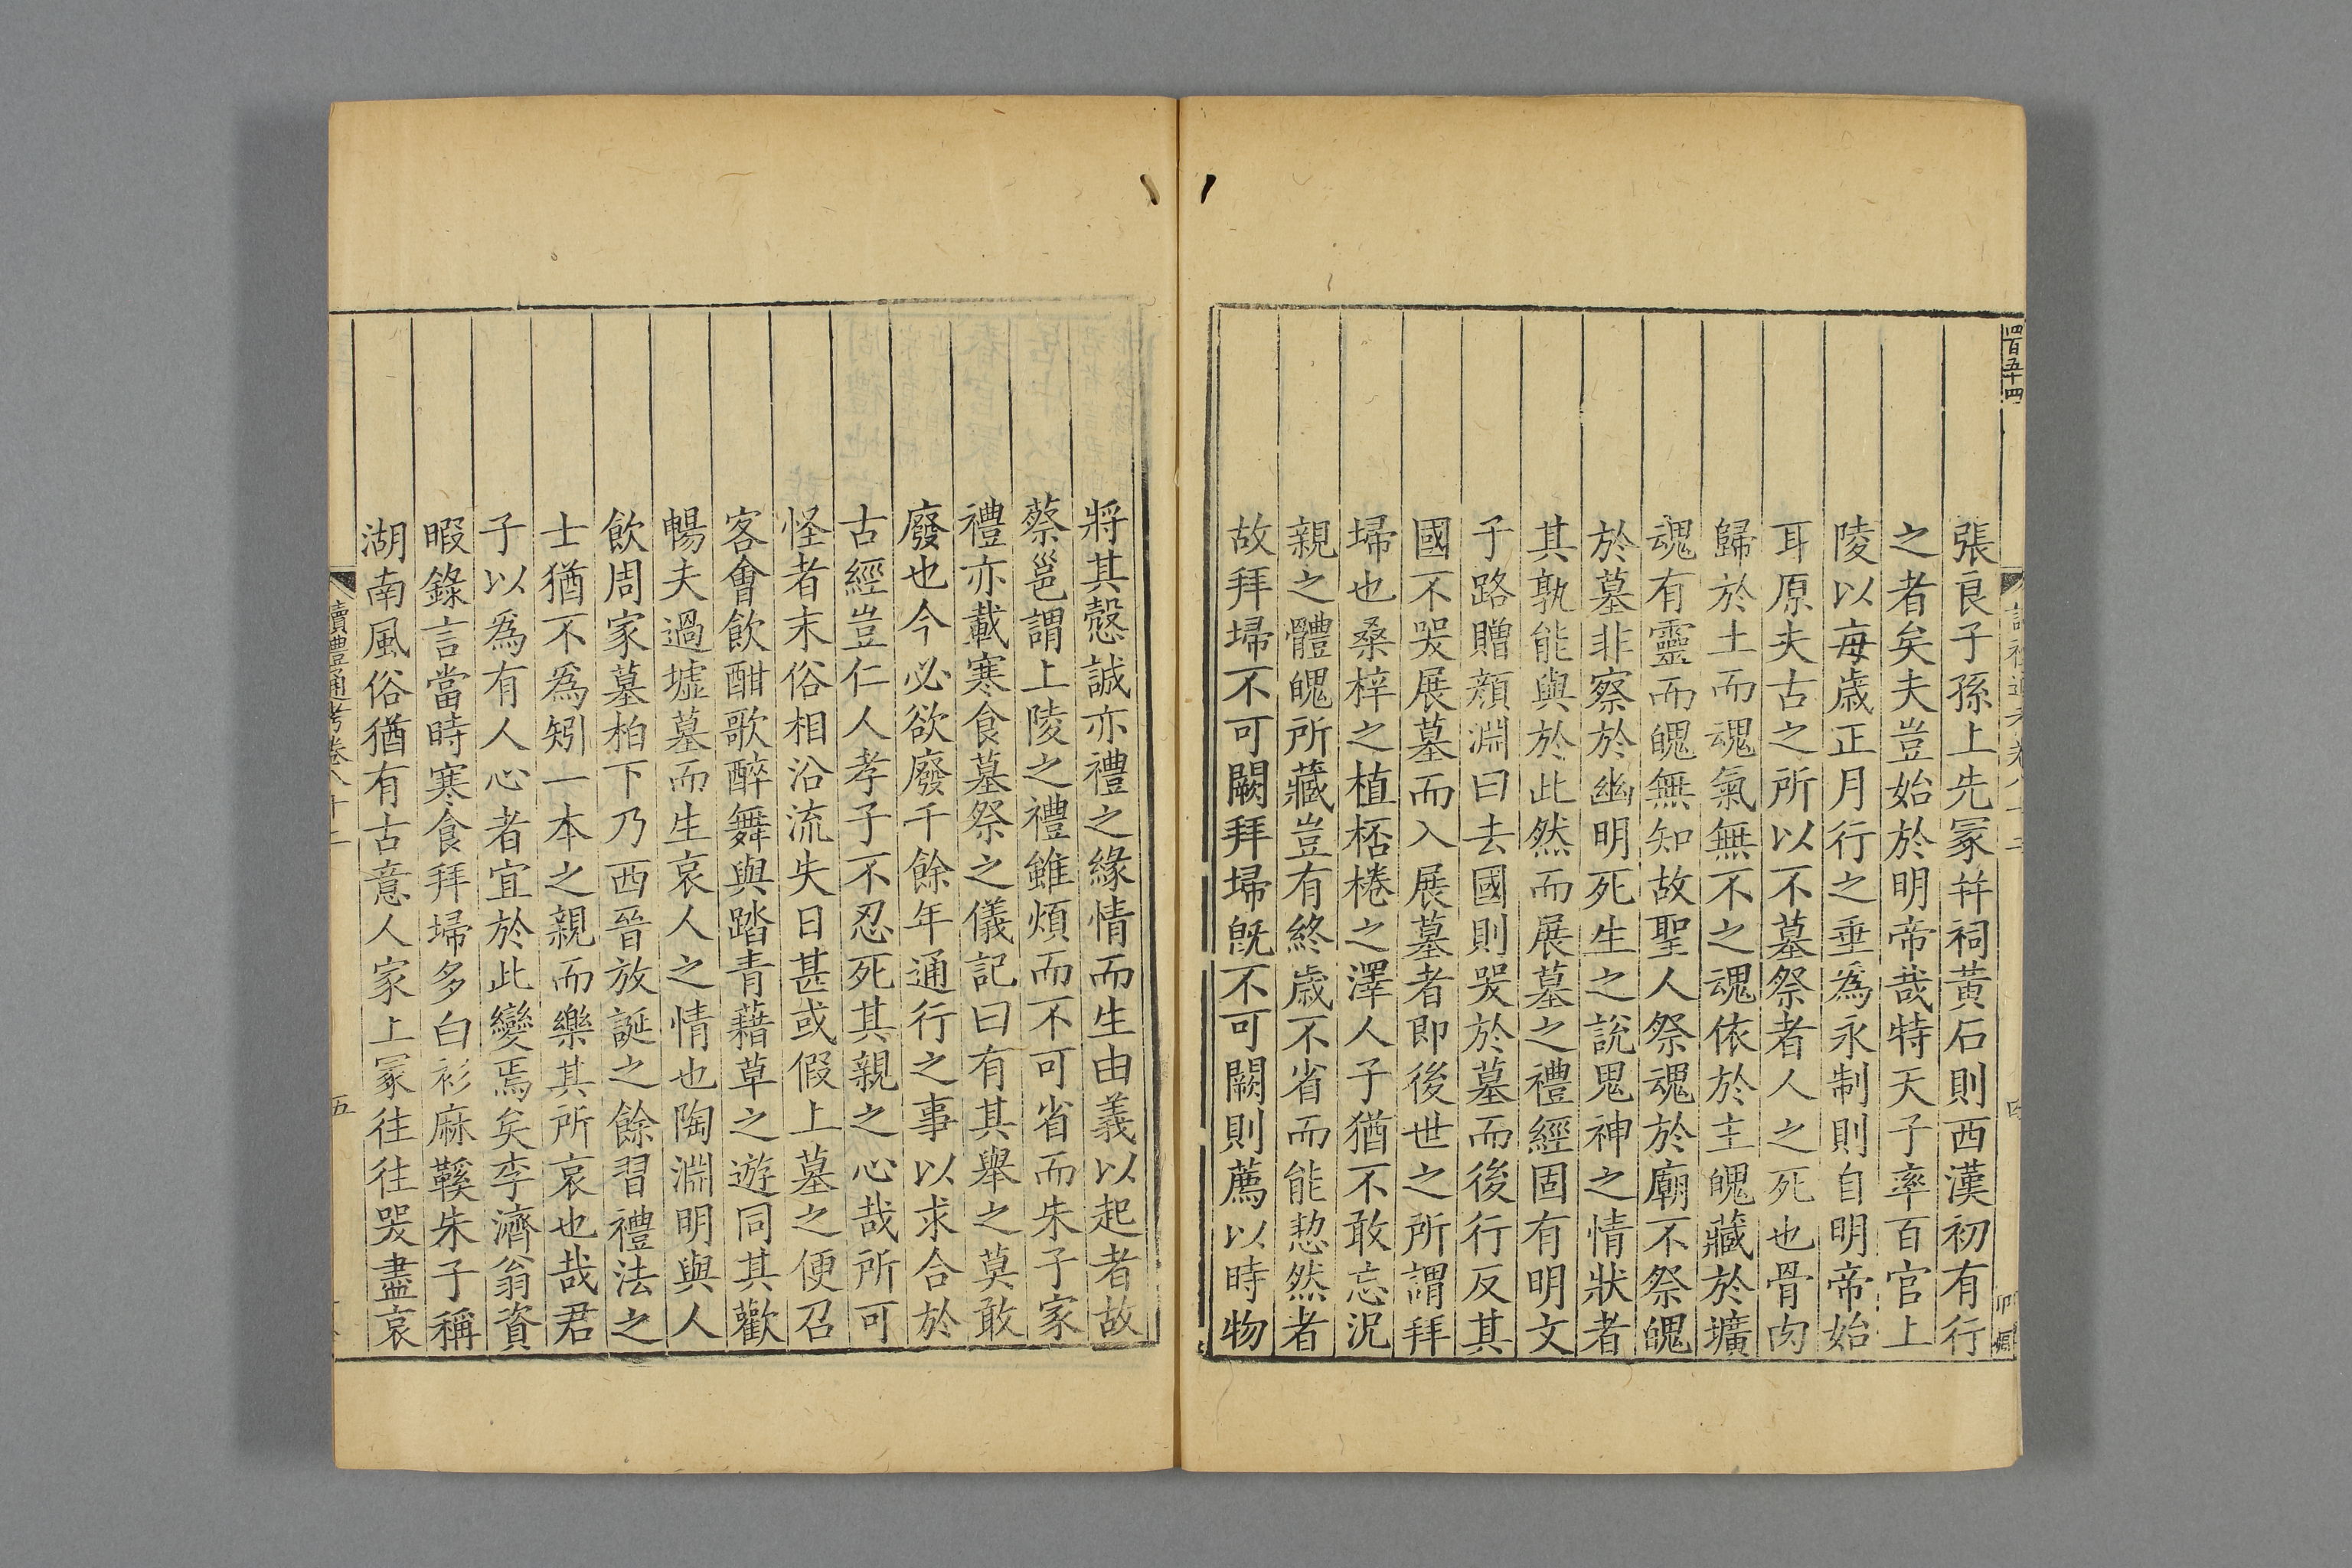 四百五十四
張良子孫上先冢并祠黃石則西漢初有行
之者矣夫豈始於明帝哉特天子率百官上
陵以每歲正月行之垂為永制則自明帝始
耳原夫古之所以不墓祭者人之死也骨肉
歸於土而魂氣無不之魂依於主魄藏於壙
魂有靈而魄無知故聖人祭魂於廟不祭魄
於墓非察於幽明死生之說鬼神之情狀者
其孰能與於此然而展墓之禮經固有明文
子路贈顏淵曰去國則哭於墓而後行反其
國不哭展墓而入展墓者即後世之所謂拜
埽也桑梓之植桮棬之澤人子猶不敢忘況
親之體魄所藏豈有終歲不省而能恝然者
故拜埽不可闕拜埽旣不可闕則薦以時物
將其愨誠亦禮之緣情而生由義以起者故
蔡邕謂上陵之禮雖煩而不可省而朱子家
禮亦載寒食墓祭之儀記曰有其舉之莫敢
廢也今必欲廢千餘年通行之事以求合於
古經豈仁人孝子不忍死其親之心哉所可
怪者末俗相沿流失日甚或假上墓之便召
客會飲酣歌醉舞與踏青藉草之遊同其歡
暢夫過墟墓而生哀人之情也陶淵明與人
飲周家墓柏下乃西晉放誕之餘習禮法之
士猶不為矧一本之親而樂其所哀也哉君
子以為有人心者宜於此變焉矣李濟翁資
暇錄言當時寒食拜埽多白衫麻鞵朱子稱
湖南風俗猶有古意人家上冢往往哭盡哀
讀禮通考卷八十二
五